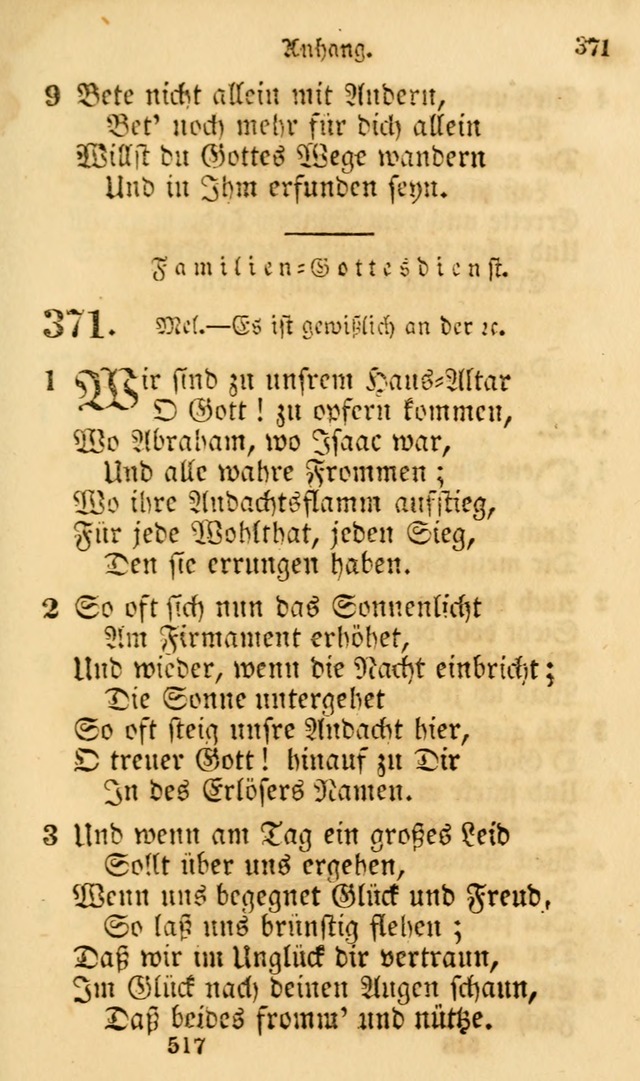 Anhang. 371
9 Bete nicht allein mit Andern,
Bet' noch mehr für dich allein
Willst du Gottes Wege wandern
Und in Ihm erfunden seyn.
Familien=Gottesdienst.
371. Mel.—Es ist gewißlich an der ꝛc.
1 Wir sind zu unsrem Haus=Altar
O Gott! zu opfern kommen,
Wo Abraham, wo Isaac war,
Und alle wahre Frommen;
Wo ihre Andachtsflamm aufstieg,
Für jede Wohlthat, jeden Sieg,
Den sie errungen haben.
2 So oft sich nun das Sonnenlicht
Am Firmament erhöhet,
Und wieder, wenn die Nacht einbricht;
Die Sonne untergehet
So oft steig unsre Andacht hier,
O treuer Gott! hinauf zu Dir
In des Erlösers Namen.
3 Und wenn am Tag ein großes Leid
Sollt über uns ergehen,
Wenn uns begegnet Glück und Freud,
So laß uns brünstig flehen;
Daß wir im Unglück dir vertraun,
Im Glück nach deinen Augen schaun,
Daß beides fromm' und nütze.
517